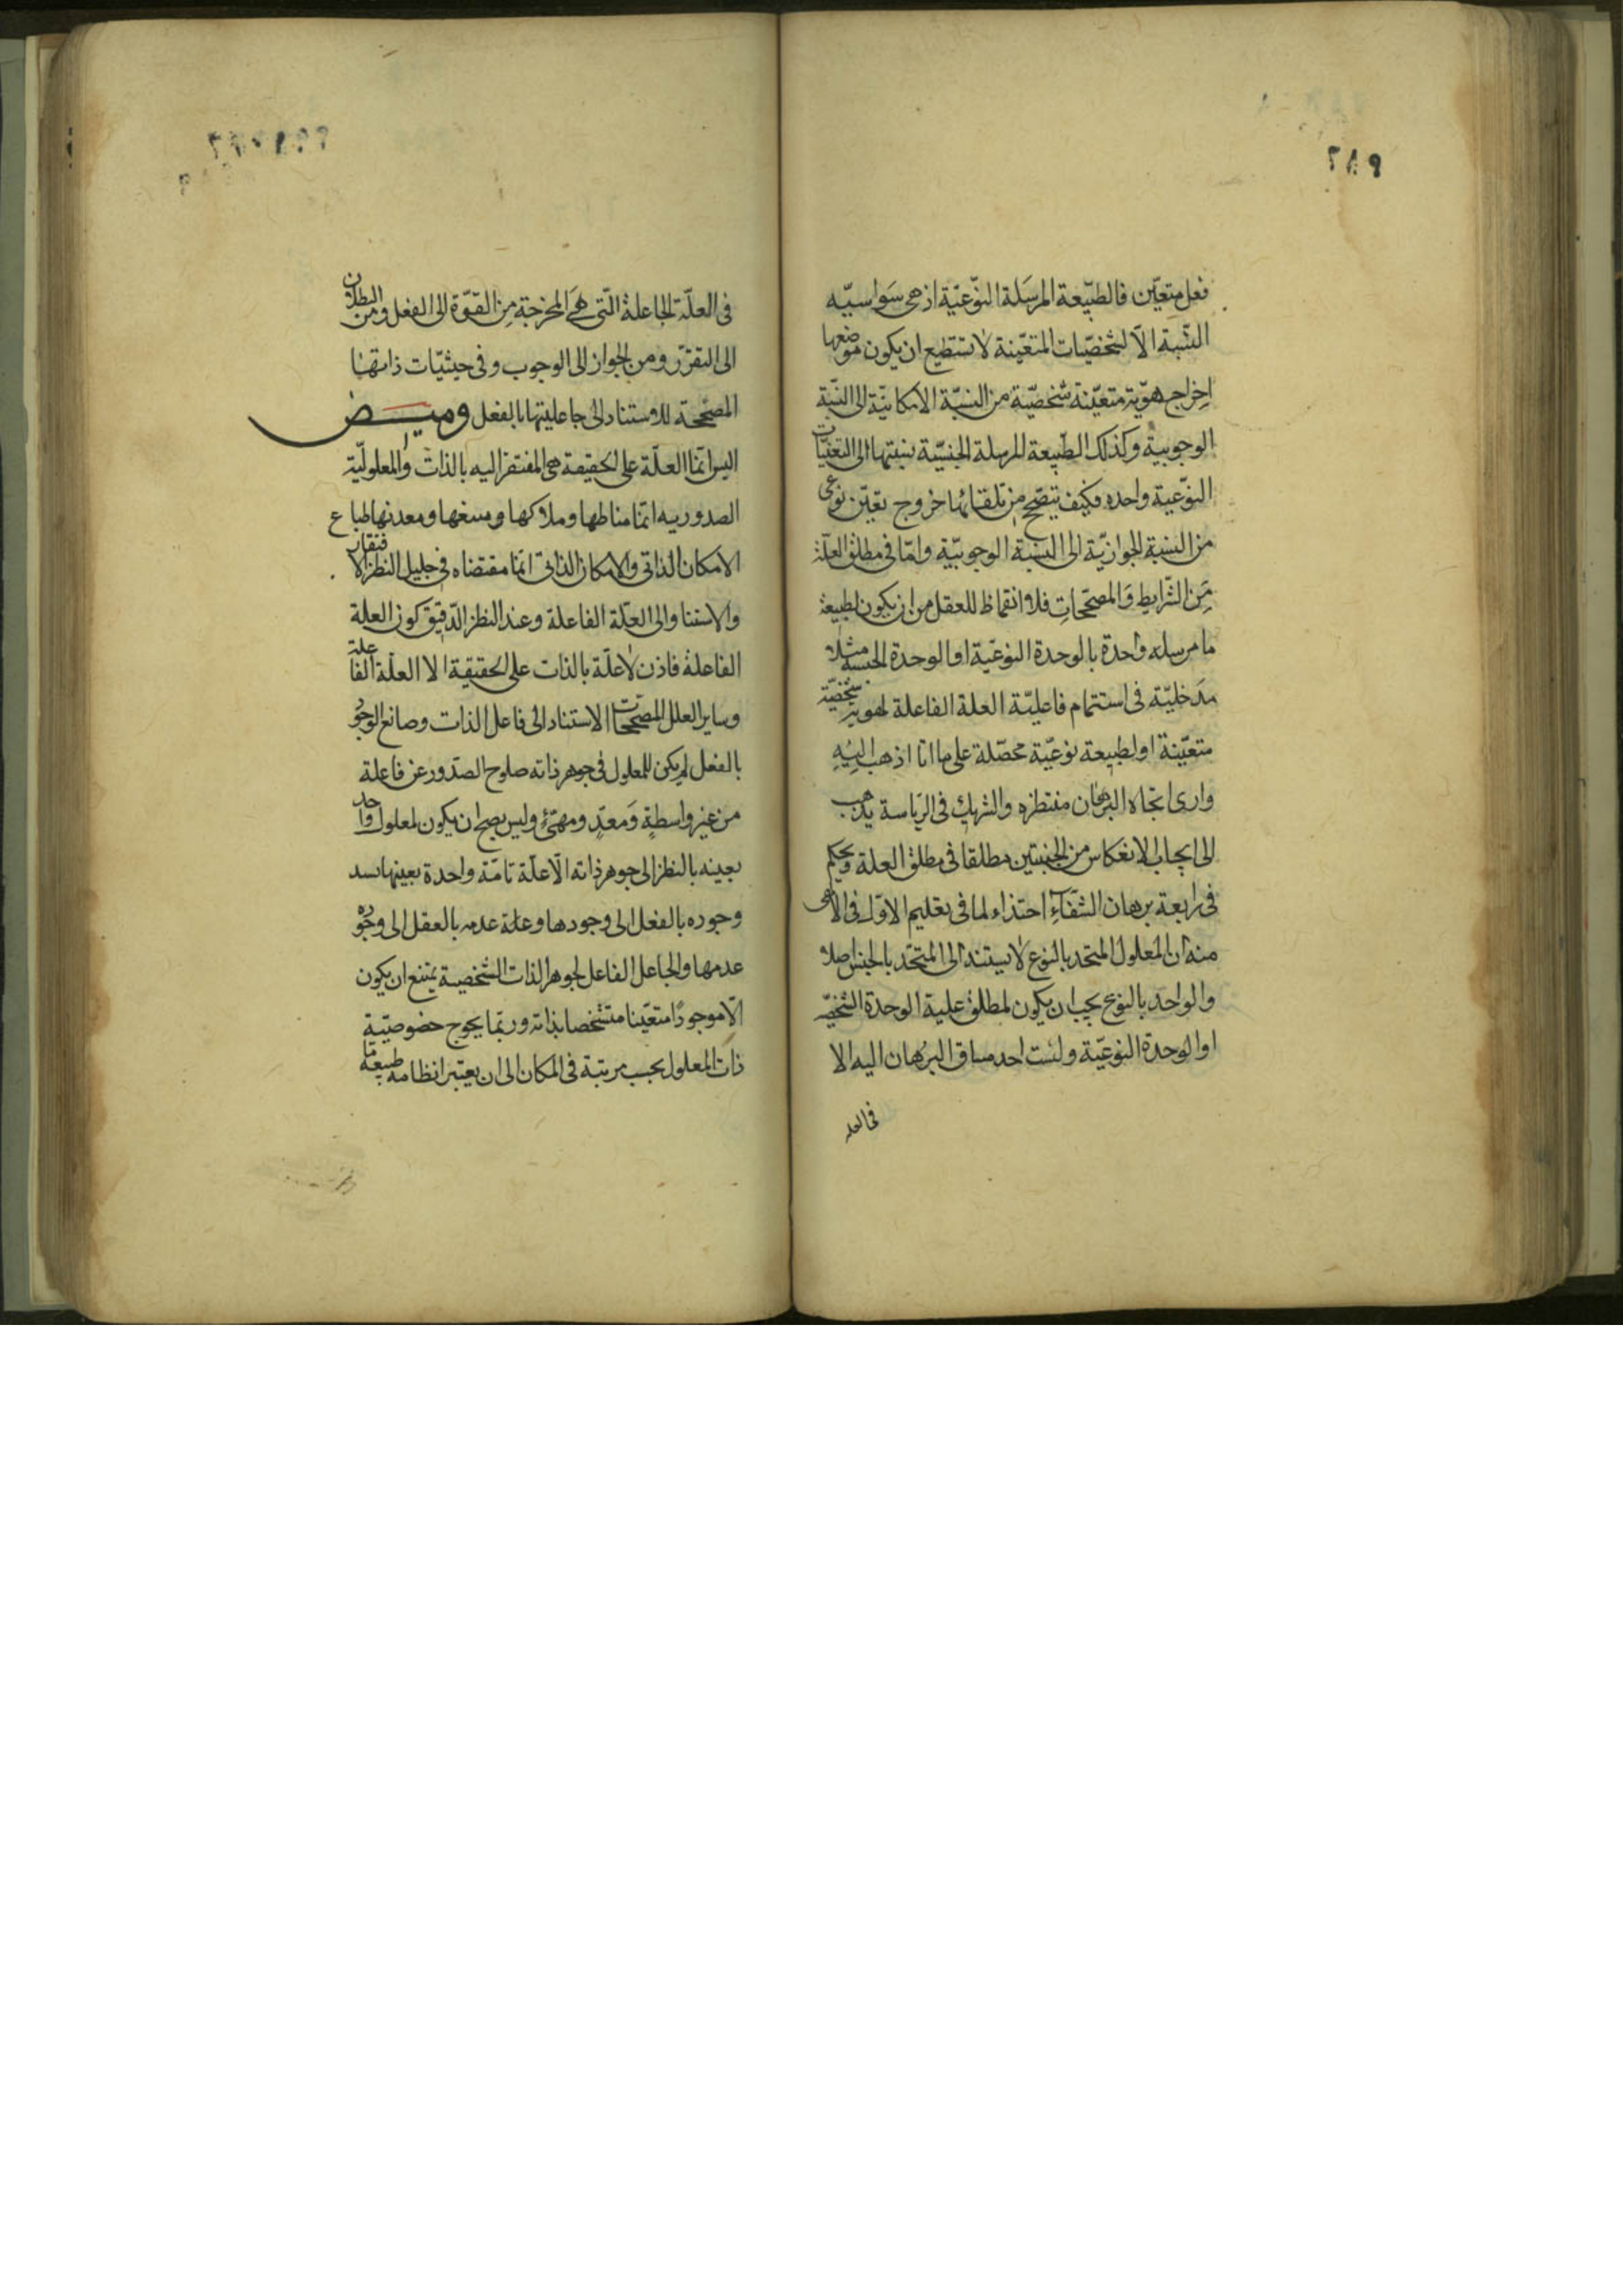 فعل متعيّن فالطبّيعة المرسَلة النوّعيّة اذ هى سَواسيّه
النسّبة الاّ لشخصيّات المتعيّنة لا تستطيع ان يكون موضعها
اخراج هويّة متعيّنة شخصيّة من النسبّة الامكانيّة الى النسّبة
الوجوبيّة وكذلك الطبّيعة المرسلة الجنسيّة نسبتها الى التعنيّات
النوّعية واحده فكيف يتصّحح من تلقائها خروج تعيّن نوعى
من النسبة الجوازيّة الى النسبة الوجوبيّة وامّا فى مطلق العلّة
مَن الشّرايط وَالمصحّحات فلا انقماظ للعقل من ان يكون لطبيعة
ما مرسله واحدة بالوحدة النوعيّة او الوحدة الجنسية مثلا
مدَخليّة فى استتمام فاعليّة العلة الفاعلة لهوية شخصيّة
متعيّنة او لطبيعة نوعيّة محصّلة على ما انا اذهب اليَهِ
وارى اتجاه البرهان منتظره والشريك فى الرّياسة يذهب
الى ايجاب الانعكاس من الجنبتين مطلقا فى مطلق العلة ويحكم
فى رابعة برهان الشّفآءِ احتذاء لما فى تعليم الاوّل فى الا
منه ان المعلول المتحد بالنوع لا يستند الى المتحّد بالجنس اصلا
والواحد بالنوع يجب ان يكون لمطلق علية الوحدة الشخصيّة
او الوحدة النوعيّة ولست احد مساق البرُهان اليه الا
فى العله
فى العلّة الجاعلة الّتى هىَ المخرجة مِن القوّة الى الفعل ومن البطلان
الى التقررّ ومن الجواز الى الوجوب وفى حيثيّات ذاتها
المصحّحة للاستناد الى جاعليتها بالفعل وميـــض
اليس انّما العلّة على الحقيقة هى المفتقر اليه بالذات والمعلوليّة
الصدوريه انّما مناطها وملاكها ومسغها ومعدنها طباع
الامكان الذاتى والامكان الذاتى انّما مقتضاه فى جليل النظر الافتقار
والاستناد الى العلّة الفاعلة وعند النظر الدّقيق كون العلة
الفاعلة فاذن لا علّة بالذات على الحقيقية الا العلّة الفاعلة
وساير العلل المصحّحات الاستناد الى فاعل الذات وصانع الوجود
بالفعل لم يكن للمعلول فى جوهر ذاته صلوح الصّدور عن فاعلة
من غير واسطةٍ وَمعدٍّ ومهيّئٍ وليس يصح ان يكون لمعلول واحد
بعينه بالنظر الى جوهر ذاته الّا علّة تامّة واحدة بعينها يسند
وجوده بالفعل الى وجودها وعلة عدمه بالعقل الى وجوده
عدمها والجاعل الفاعل لجوهر الذات الشخصية يمتنع ان يكون
الّا موجودًا متعيّنا متشخصا بذاته وربّما يحوج خصوصيّة
ذات المعلول بحسب مرتبة فى المكان الى ان يعتبر انظامه طبيعة ما